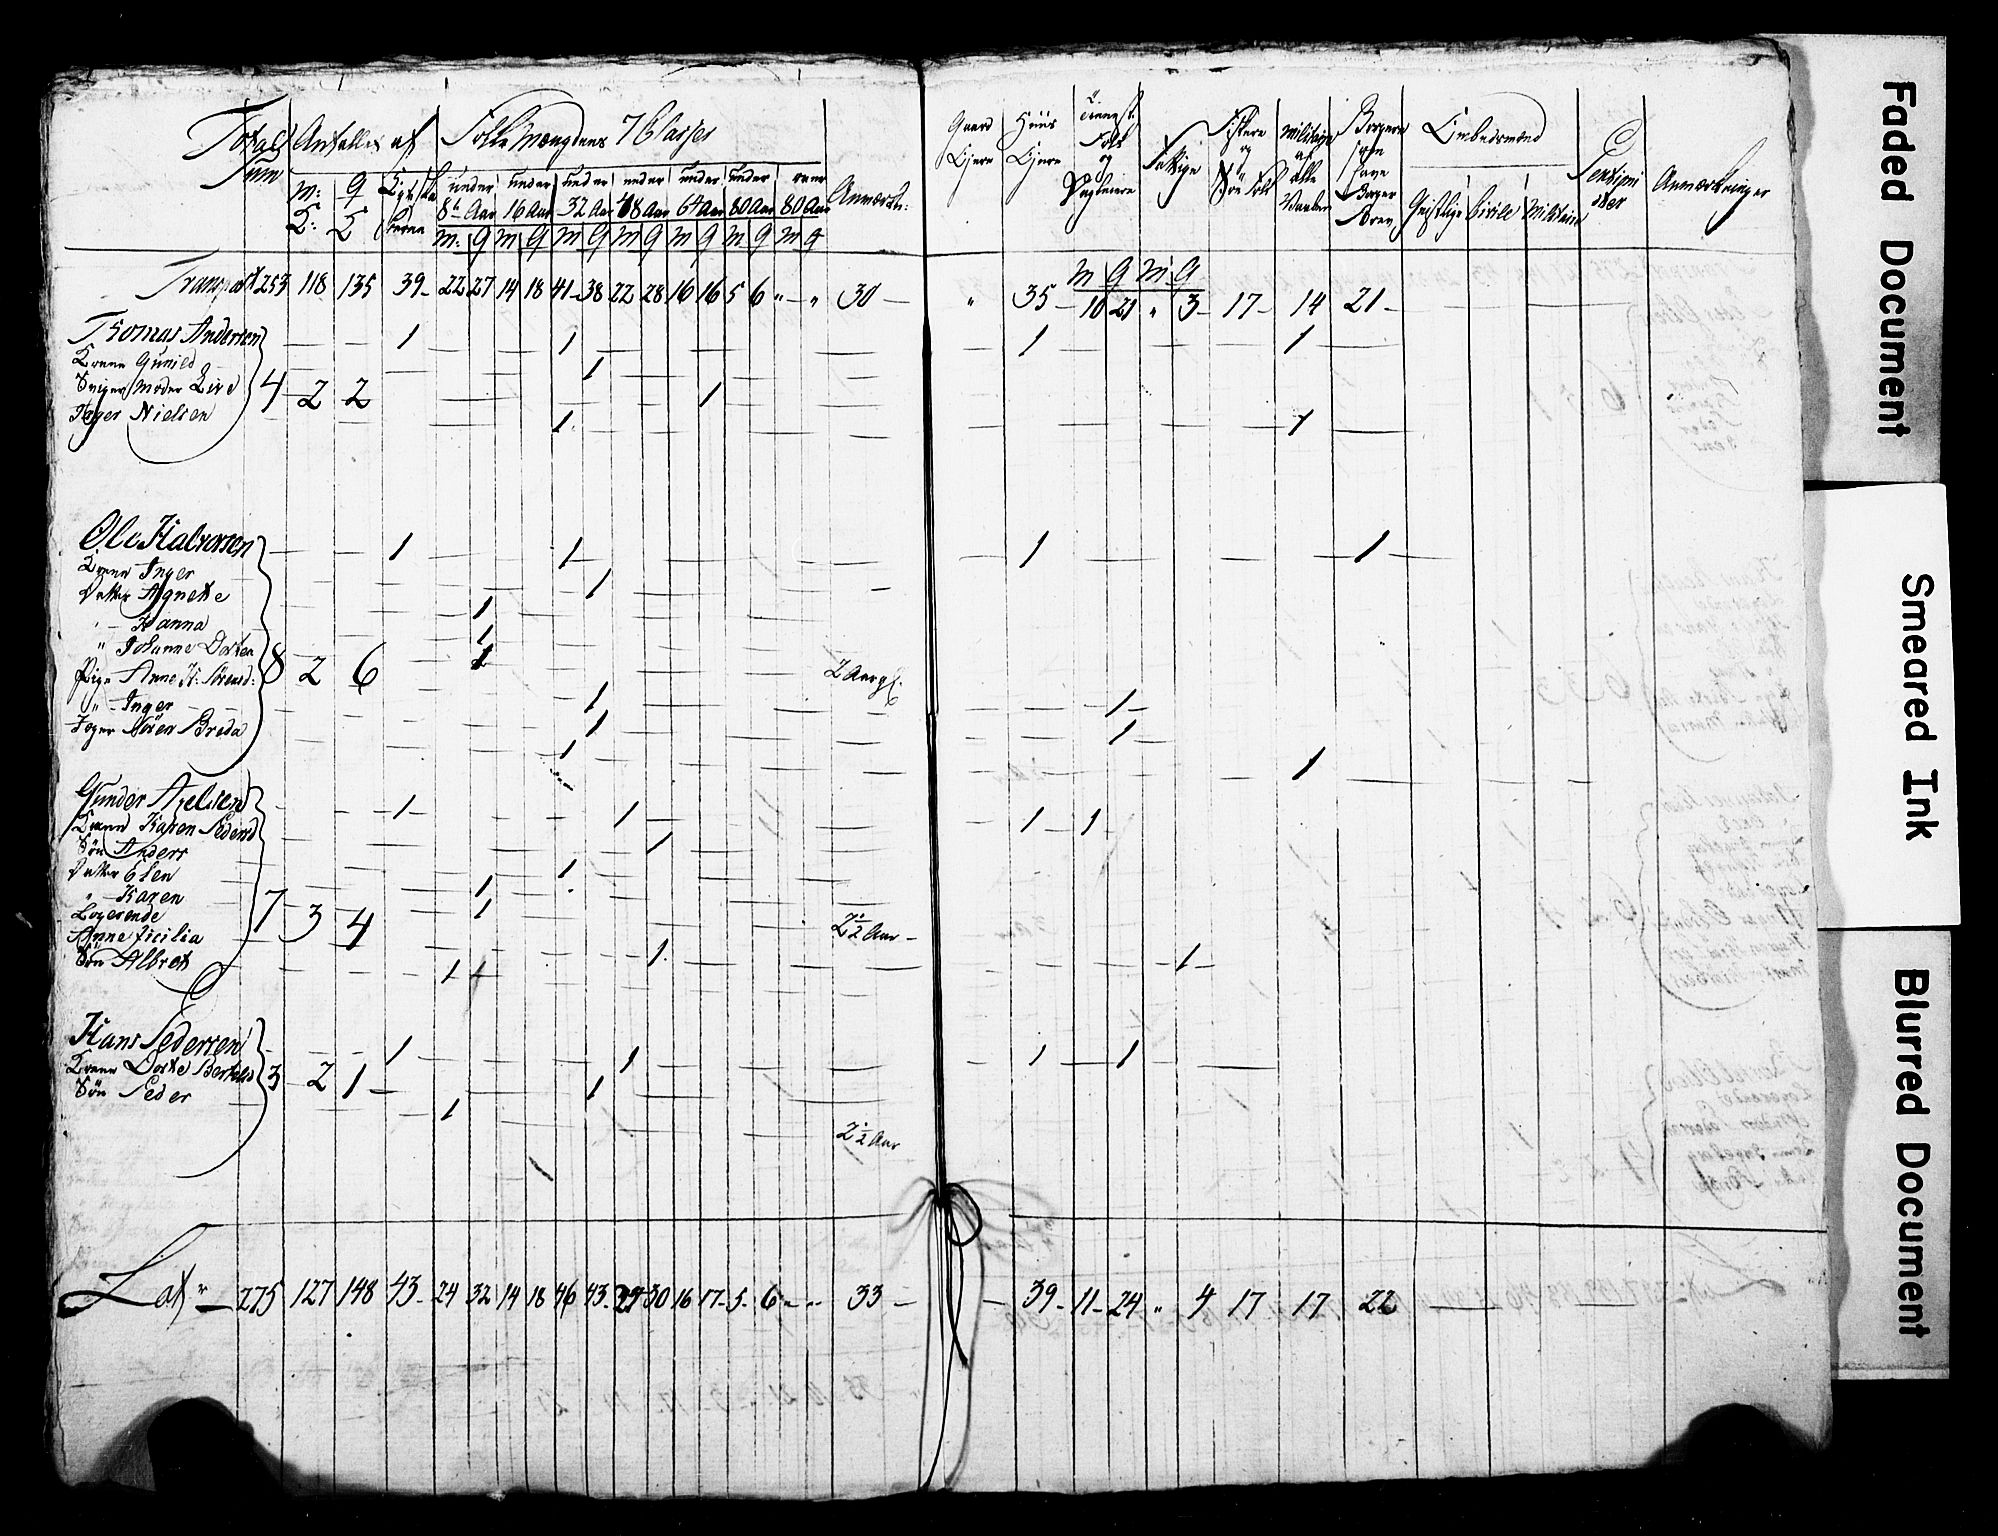 Total Antallet af Folkemængdens 7 Classer
Sum
M: Q Egteska under under under under under under over Anmærkn:
K: K berne 8te Aar 16 Aar 32 Aar 48 Aar 64 Aar 80 Aar 80 Aar
M: Q M Q M Q M Q M Q M Q M Q
Transport 253 118 135 39 - 22 27 14 18 41 - 38 22 28 16 16 5 6 " — " 30 —
Thomas Andersen 1 1
Kone Gunild 1
Sviger Moder Live 4 2 2 1
Jæger Nielsen 1
Ole Halvorsen 1 1
Kone Inger 1
Datter Agnete 1
" - Hanna 1
" Johanne Dorten 1
Pige Anne K: Sørensd: 8 2 6 2 Aar
" - Inger 1
Jæger Sören Breda 1
1
Gunder Axelsen 1 1
Kone Karen Pedersd 1
Sön Anders 1
Datter Elen 1
" Karen 1
Logerende 7 3 4
Anne Sicilia 1 2 1/2 Aar -
Sön Albret 1
Hans Pedersen 1 1
Kone Dorte 3 2 1 - 1
Sön Peder 1
2 1/2 Aar
Lat " 275 127 148 43 - 24 32 14 18 46 43 - 30 16 17 - 5 - 6 - " 33 —
Gaard Huus Tienest Fattige Fiskere Militaire Borgere Embedsmænd Pensioni Anmærkninger
Ejere Ejere Folk og af som ster
og Söe Folk alle have
Vaaben Borger
Brev Geistlige Civile Militaire
M Q M Q
" 35 - 10 21 " 3 - 17 - 14 21 -
1 1
1
1 1
1 -
1
1
1 - 1
1 -
1 1
39 - 11 - 24 " 4 17 17 22
Faded Document
Smeared Ink
Blurred Document